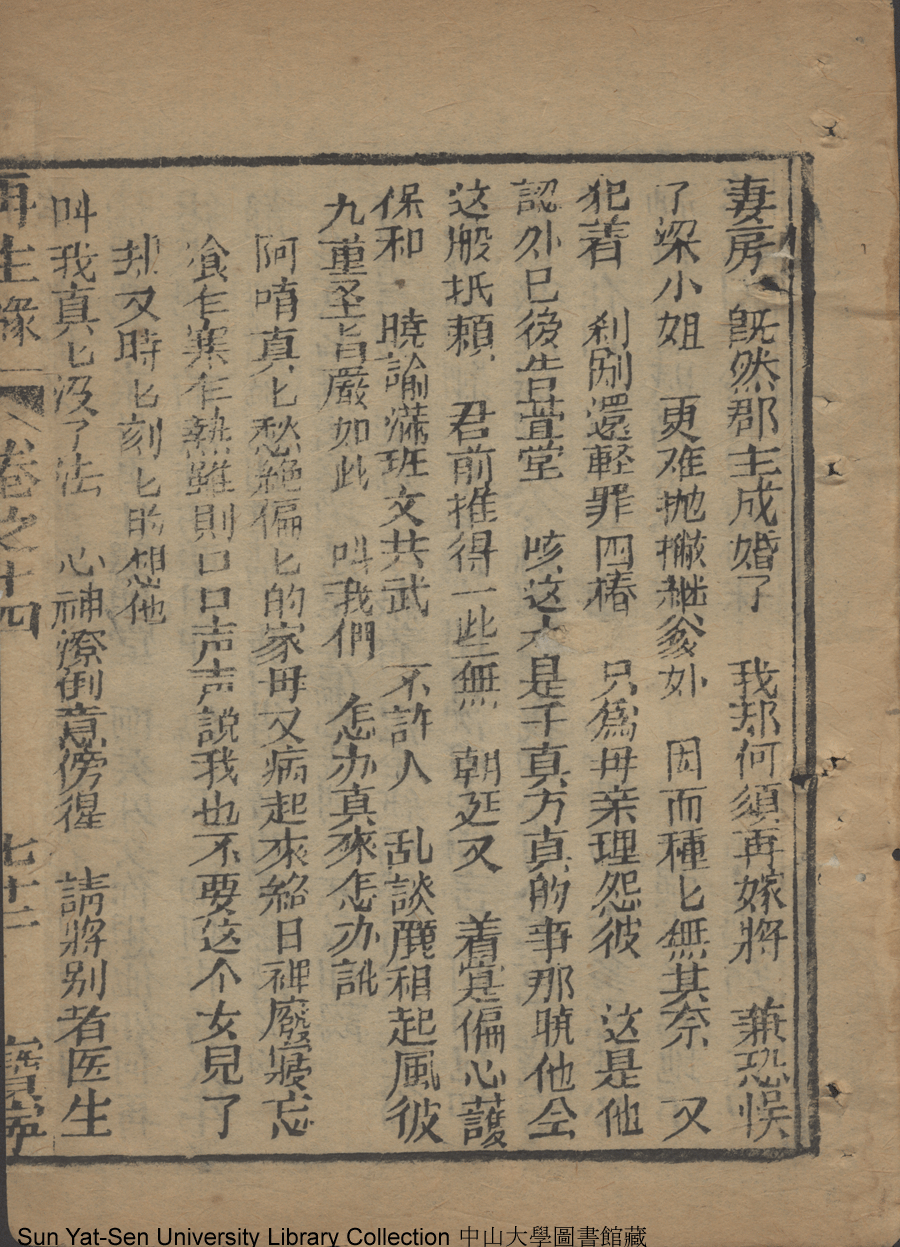 妻房　既然郡主成婚了　我却何須再嫁將　兼恐悞
了梁小姐　更难抛撇継爹妳　因而種匕無其奈　又
犯着　刹剐還軽罪四樁　只為母亲理怨彼　这是他
認外已後告萱堂　咳这才是千真万真的事那暁他仝
这般抵頼　君前推得一些無　朝廷又　着寔偏心護
保和　曉諭滿班文共武　不許人　乱談麗相起風彼
九重圣旨嚴如此　叫我們　怎办真來怎办訛
阿唷真匕愁絶偏匕的家母又病起來終日裡廢寢忘
飡乍寒乍熱雖則口口声声說我也不要这个女兒了
却又時匕刻匕的想他
叫我真匕没了法　心神潦倒意傍徨　請將别者医生
再生縁　卷之十四　七十一　寶寧